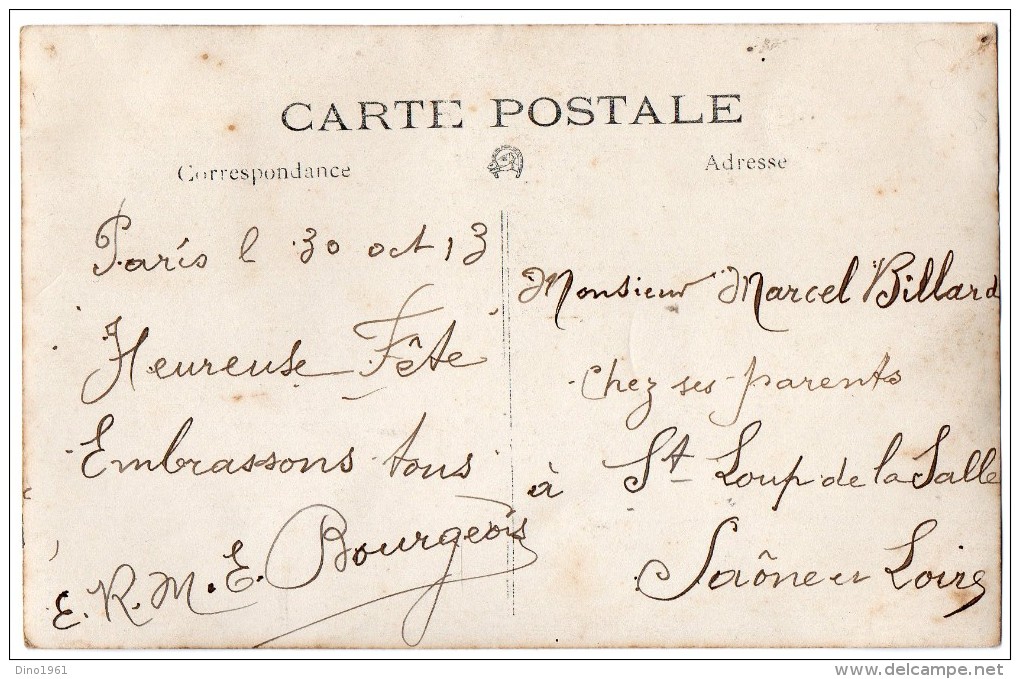 CARTE POSTALE
Correspondance
Adresse
Paris l 30 oct 13
Heureuse Fête
Embrassons tous
E. R. M. E. Bourgeois
Monsieur Marcel Billard
chez ses parents
à St Loup de la Salle
Saône et Loire
Dino1961
delcampe.net